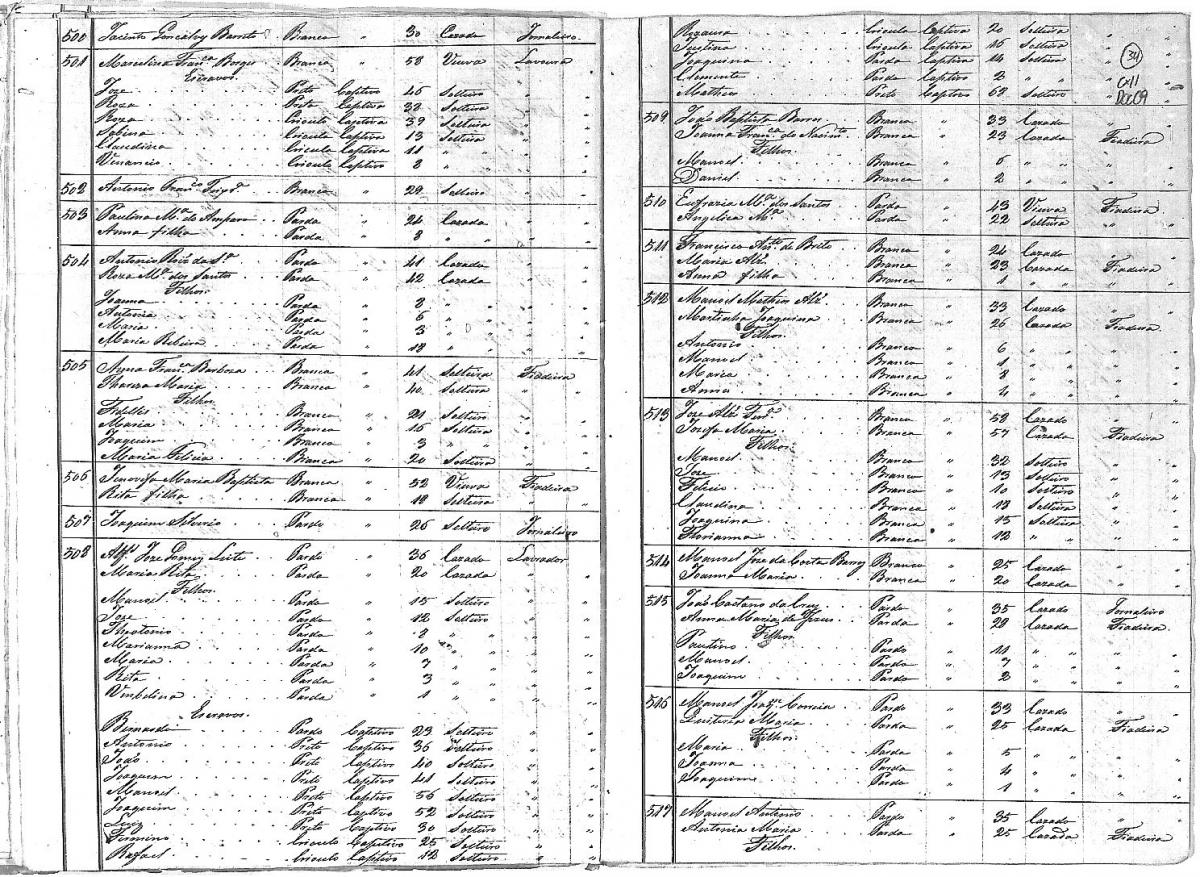 500 Jacinto Gonçalvez Barreto Branco " 30 Cazado Jornaleiro
501 Marcelina Fran.ca Borges Branca " 58 Viuva Lavoura
Escravos
Joze Preto Captivo 45 Solteiro "
Roza Preta Captiva 38 Solteira "
Roza Crioula Captiva 39 Solteira "
Sabina Crioula Captiva 13 Solteira "
Claudina Crioula Captiva 11 " "
Venancio Crioulo Captivo 8 " "
502 Antonio Branco " 29 Solteiro "
503 Paulina M.a do Amparo Parda " 24 Cazada "
Anna filha Parda " 8 " "
504 Antonio Pardo " 41 Cazado "
Roza M.a dos Santos Parda " 42 Cazada "
Filhos
Joanna Parda " 8 " "
Antonia Parda " 6 " "
Maria Parda " 3 " "
Maria Ribeira Parda " 18 " "
505 Anna Fran.ca Barboza Branca " 41 Solteira Fiadeira
Thareza Maria Branca " 40 Solteira "
Filhos
Fidelles Branco " 21 Solteiro "
Maria Branca " 16 Solteira "
Joaquim Branco " 3 " "
Maria Felicia Branca " 20 Solteira "
506 Jenovefa Maria Baptista Branca " 52 Viuva Fiadeira
Rita filha Branca " 18 Solteira "
507 Joaquim Pardo " 26 Solteiro Jornaleiro
508 Alf.s Joze Gomes Leite Pardo " 36 Cazado Lavrador
Maria Rita Parda " 20 Cazada "
Filhos
Manoel Pardo " 15 Solteiro "
Joze Pardo " 12 Solteiro "
Theotonio Pardo " 8 " "
Marianna Parda " 10 " "
Maria Parda " 7 " "
Rita Parda " 3 " "
Vimbelina Parda " 1 " "
Escravos
Bernardo Pardo Captivo 23 Solteiro "
Antonio Preto Captivo 36 Solteiro "
João Preto Captivo 40 Solteiro "
Joaquim Preto Captivo 41 Solteiro "
Manoel Preto Captivo 56 Solteiro "
Joaquim Preto Captivo 52 Solteiro "
Luiz Preto Captivo 30 Solteiro "
Firmino Crioulo Captivo 25 Solteiro "
Rafael Crioulo Captivo 12 Solteiro "
Rozaura Crioula Captiva 20 Solteira "
Justina Crioula Captiva 16 Solteira "
Joaquina Parda Captiva 14 Solteira "
Clemente Pardo Captivo 2 " "
Matheus Preto Captivo 68 Solteiro "
34
Cx11
Doc09
509 João Baptista Barros Branco " 33 Cazado "
Joanna Fran.ca do Nacim.to Branca " 23 Cazada Fiadeira
Filhos
Manoel Branco " 5 " "
Daniel Branco " 2 " "
510 Eufrazia M.a dos Santos Parda " 43 Viuva Fiadeira
Angelica M.a Parda " 22 Solteira "
511 Francisco Ant.o de Brito Branco " 24 Cazado "
Maria Alz. Branca " 23 Cazada Fiadeira
Anna filha Branca " 1 " "
512 Manoel Matheus Alz. Branco " 33 Cazado "
Martinha Joaquina Branca " 26 Cazada Fiadeira
Filhos
Antonio Branco " 6 " "
Manoel Branco " 1 " "
Maria Branca " 8 " "
Anna Branca " 4 " "
513 Joze Alz. Branco " 58 Cazado "
Jozefa Maria Branca " 57 Cazada Fiadeira
Filhos
Manoel Branco " 32 Solteiro "
Joze Branco " 13 Solteiro "
Felicio Branco " 10 Solteiro "
Claudina Branca " 18 Solteira "
Joaquina Branca " 15 Solteira "
Florianna Branca " 12 " "
514 Manoel Joze da Costa Barros Branco " 25 Cazado "
Joanna Maria Branca " 20 Cazada "
515 João Caetano da Cruz Pardo " 35 Cazado Jornaleiro
Anna Maria de Jezus Parda " 28 Cazada Fiadeira
Filhos
Paulino Pardo " 11 " "
Manoel Pardo " 7 " "
Joaquim Pardo " 2 " "
516 Manoel Joaq.m Correia Pardo " 33 Cazado "
Luiteria Maria Parda " 25 Cazada Fiadeira
Filhos
Maria Parda " 5 " "
Joanna Parda " 4 " "
Joaquim Pardo " 1 " "
517 Manoel Antonio Pardo " 35 Cazado "
Antonia Maria Parda " 25 Cazada Fiadeira
Filhos